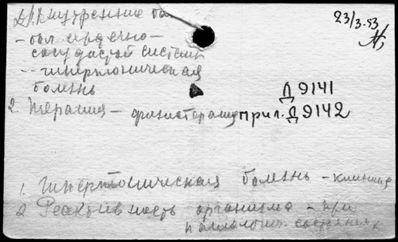 Д.Р. Внутренние бол
- бол сердечно-
сосудистой систем
-- гипертоническая
болезнь
2. Терапия - физиотерапия
23/3.53
Д 9141
при л. Д 9142
1. Гипертоническая болезнь - клиника
2 Реактивность организма - при
патологич. состояниях